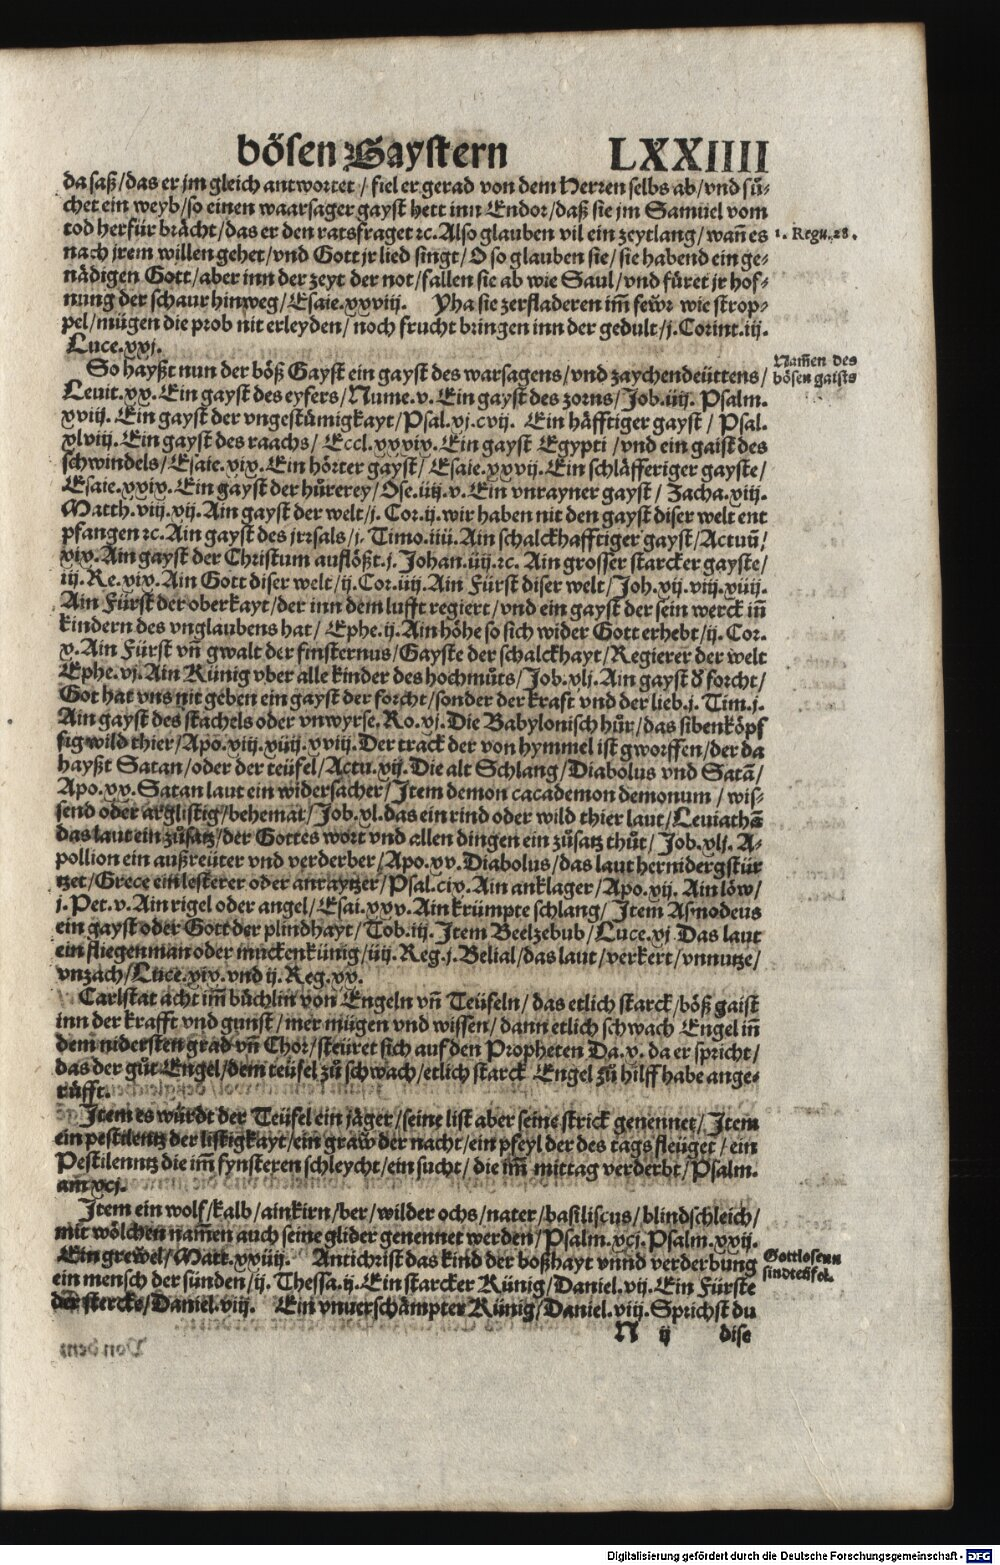 bösen Gaystern LXXIIII
da saß/das er jm gleich antwortet/fiel er gerad von dem Herren selbs ab/vnd sů-
chet ein weyb/so einen waarsager gayst hett inn Endor/daß sie jm Samuel vom
tod herfür brächt/das er den ratsfraget ⁊c. Also glauben vil ein zeytlang/wañ es
1. Regū. 28.
nach jrem willen gehet/vnd Gott jr lied singt/O so glauben sie/sie habend ein ge-
nädigen Gott/aber inn der zeyt der not/fallen sie ab wie Saul/vnd füret jr hof-
nung der schaur hinweg/Esaie.xxviij. Yha sie zerfladeren im̃ fewr wie strop-
pel/mügen die prob nit erleyden/noch frucht bringen inn der gedult/j.Corint.iij.
Luce.xxj.
Nam̃en des
bösen gaists
So hayßt nun der böß Gayst ein gayst des warsagens/vnd zaychendeüttens/
Leuit.xx. Ein gayst des eyfers/Nume.v. Ein gayst des zorns/Job.iiij. Psalm.
xviij. Ein gayst der vngestümigkayt/Psal.vj.cvij. Ein häfftiger gayst/Psal.
xlviij. Ein gayst des raachs/Eccl.xxxix. Ein gayst Egypti/vnd ein gaist des
schwindels/Esaie.xix. Ein hörter gayst/Esaie.xxvij. Ein schläfferiger gayste/
Esaie.xxix. Ein gayst der hůrerey/Ose.iiij.v. Ein vnrayner gayst/Zacha.xiij.
Matth.viij.xij. Ain gayst der welt/j.Cor.ij. wir haben nit den gayst diser welt ent
pfangen ⁊c. Ain gayst des jrrsals/j.Timo.iiij. Ain schalckhafftiger gayst/Actuū/
xix. Ain gayst der Christum auflößt.j.Johan.iiij.⁊c. Ain grosser starcker gayste/
iij.Re.xix. Ain Gott diser welt/ij.Cor.iiij. Ain Fürst diser welt/Joh.xij.xiij.xiiij.
Ain Fürst der oberkayt/der inn dem lufft regiert/vnd ein gayst der sein werck iñ
kindern des vnglaubens hat/Ephe.ij. Ain höhe so sich wider Gott erhebt/ij.Cor.
x. Ain Fürst vñ gwalt der finsternus/Gayste der schalckhayt/Regierer der welt
Ephe.vj. Ain Künig vber alle kinder des hochmůts/Job.xlj. Ain gayst d' forcht/
Got hat vns nit geben ein gayst der forcht/sonder der kraft vnd der lieb.j.Tim.j.
Ain gayst des stachels oder vnwyrse. Ro.xj. Die Babylonisch hůr/das sibenköpf
fig wild thier/Apo.xiij.xiiij.xviij. Der track der von hymmel ist gworffen/der da
hayßt Satan/oder der teüfel/Actu.xij. Die alt Schlang/Diabolus vnd Satā/
Apo.xx. Satan laut ein widersacher/Item demon cacademon demonum/wis-
send oder arglistig/behemat/Job.xl. das ein rind oder wild thier laut/Leuiathā
das laut ein zůsatz/der Gottes wort vnd allen dingen ein zůsatz thůt/Job.xlj. A-
pollion ein außreüter vnd verderber/Apo.xx. Diabolus/das laut hernidergstür
tzet/Grece ein lesterer oder anraytzer/Psal.cix. Ain anklager/Apo.xij. Ain löw/
j.Pet.v. Ain rigel oder angel/Esai.xxv. Ain krümpte schlang/Item Asmodeus
ein gayst oder Gott der plindhayt/Tob.iij. Item Beelzebub/Luce.xj. Das laut
ein fliegenman oder muckenkünig/iiij.Reg.j. Belial/das laut/verkert/vnnutze/
vnzäch/Luce.xix. vnd ij.Reg.xx.
Carlstat acht im̃ büchlin von Engeln vñ Teüfeln/das etlich starck/böß gaist
inn der krafft vnd gunst/mer mügen vnd wissen/dann etlich schwach Engel iñ
dem nidersten grad vñ Chor/steüret sich auf den Propheten Da.x. da er spricht/
das der gůt Engel/dem teüfel zů schwach/etlich starck Engel zů hilff habe ange-
růfft.
Item es würdt der Teüfel ein jäger/seine list aber seine strick genennet/Item
ein pestilentz der listigkayt/ein graw̃ der nacht/ein pfeyl der des tags fleüget/ein
Pestilenntz die im̃ fynsteren schleycht/ein sucht/die im̃ mittag verderbt/Psalm.
am xcj.
Item ein wolf/kalb/ainkirn/ber/wilder ochs/nater/basiliscus/blindschleich/
mit wölchen nam̃en auch seine glider genennet werden/Psalm.xcj. Psalm.xxij.
Ein grewel/Matt.xxiiij. Antichrist das kind der boßhayt vnnd verderbung
Gottlosenn
sindteüfel.
ein mensch der sünden/ij.Thessa.ij. Ein starcker Künig/Daniel.vij. Ein Fürste
der stercke/Daniel.viij. Ein vnuerschämpter Künig/Daniel.viij. Sprichst du
N ij dise
Digitalisierung gefördert durch die Deutsche Forschungsgemeinschaft - DFG